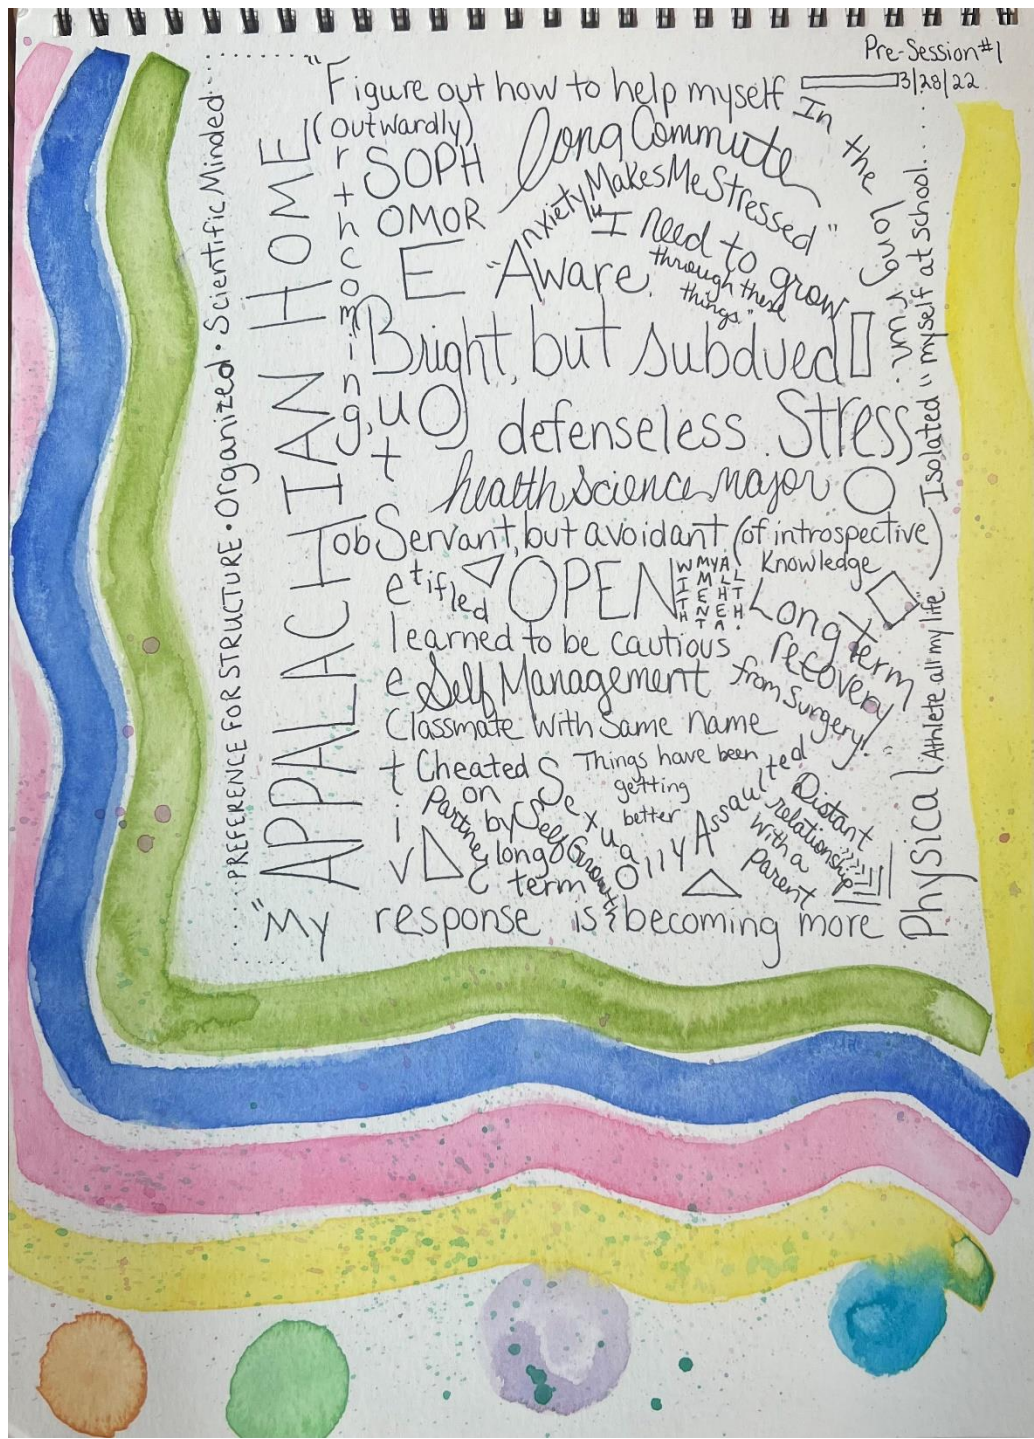 Pre-Session #1
3/28/22
"Figure out how to help myself In the long run."
(outwardly)
forthcoming, but
SOPH
OMOR
E
long Commute
Anxiety Makes Me Stressed"
"I need to grow
through these
things."
"Aware.
Bright, but subdued
defenseless. Stress
health science major
observant, but avoidant (of introspective)
Knowledge
OPEN
WITH MY MENTAL HEALTH.
Long term
recovery
from surgery!
learned to be cautious
Self Management
Classmate with same name
Cheated
on
by
Partner
long
term
Self Growth
Things have been
getting
better
Sexually Assaulted
Distant
relationship
with a
parent
"My response is becoming more
Physical (Athlete all my life.)
Isolated "myself at school...
APPALACHIAN HOME
PREFERENCE FOR STRUCTURE • Organized • Scientific Minded